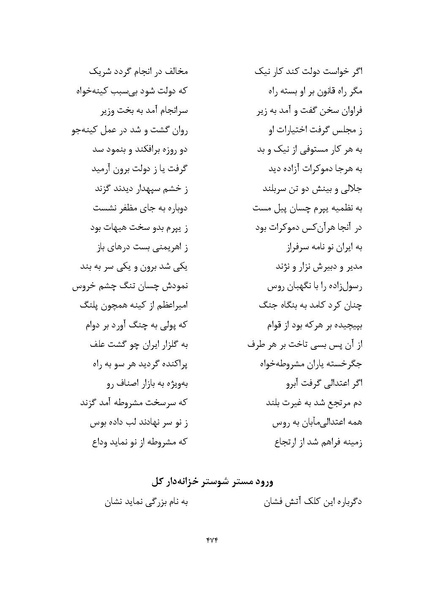 اگر خواست دولت کند کار تیک مخالف در انجام گردد شریک
مگر راه قانون بر او بسته راه که دولت شود بی‌سبب کینه‌خواه
فراوان سخن گفت و آمد به زیر سرانجام آمد به بخت وزیر
ز مجلس گرفت اختیارات او روان گشت و شد در عمل کینه‌جو
به هر کار مستوفی از نیک و بد دو روزه برافکند و بنمود سد
به هرجا دموکرات آزاده دید گرفت یا ز دولت برون آرمید
جلالی و بینش دو تن سربلند ز خشم سپهدار دیدند گزند
به نظمیه یپرم چسان پیل مست دوباره به جای مظفر نشست
در آنجا هرآن‌کس دموکرات بود ز یپرم بدو سخت هیهات بود
به ایران نو نامه سرفراز ز اهریمنی بست درهای باز
مدیر و دبیرش نزار و نژند یکی شد برون و یکی سر به بند
رسول‌زاده را با نگهبان روس نمودش چسان تنگ چشم خروس
چنان کرد کامد به بنگاه جنگ امیراعظم از کینه همچون پلنگ
بپیچیده بر هرکه بود از قوام که پولی به چنگ آورد بر دوام
از آن پس بسی تاخت بر هر طرف به گلزار ایران چو گشت علف
جگرخسته یاران مشروطه‌خواه پراکنده گردید هر سو به راه
اگر اعتدالی گرفت آبرو به‌ویژه به بازار اصناف رو
دم مرتجع شد به غیرت بلند که سرسخت مشروطه آمد گزند
همه اعتدالی‌مآبان به روس ز نو سر نهادند لب داده بوس
زمینه فراهم شد از ارتجاع که مشروطه از نو نماید وداع
ورود مستر شوستر خزانه‌دار کل
دگرباره این کلک آتش فشان به نام بزرگی نماید نشان
۴۷۴